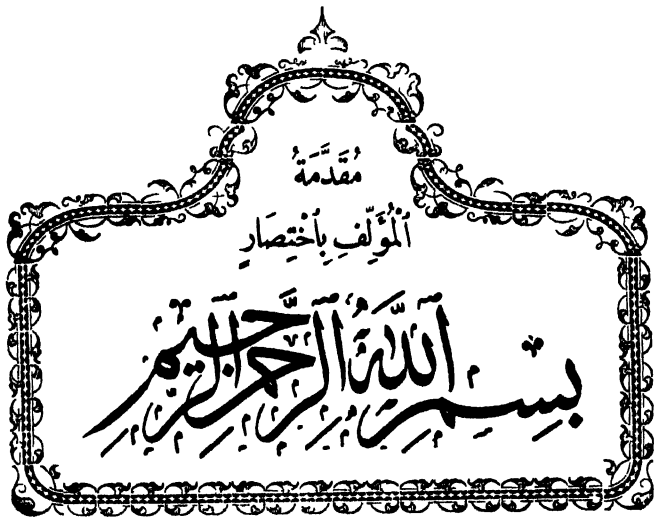 مُقَدَّمَةُ
ٱلْمُؤَلِّفِ بِٱخْتِصَارٍ
بِسْمِ ٱللَّهِ ٱلرَّحْمَنِ ٱلرَّحِيمِ